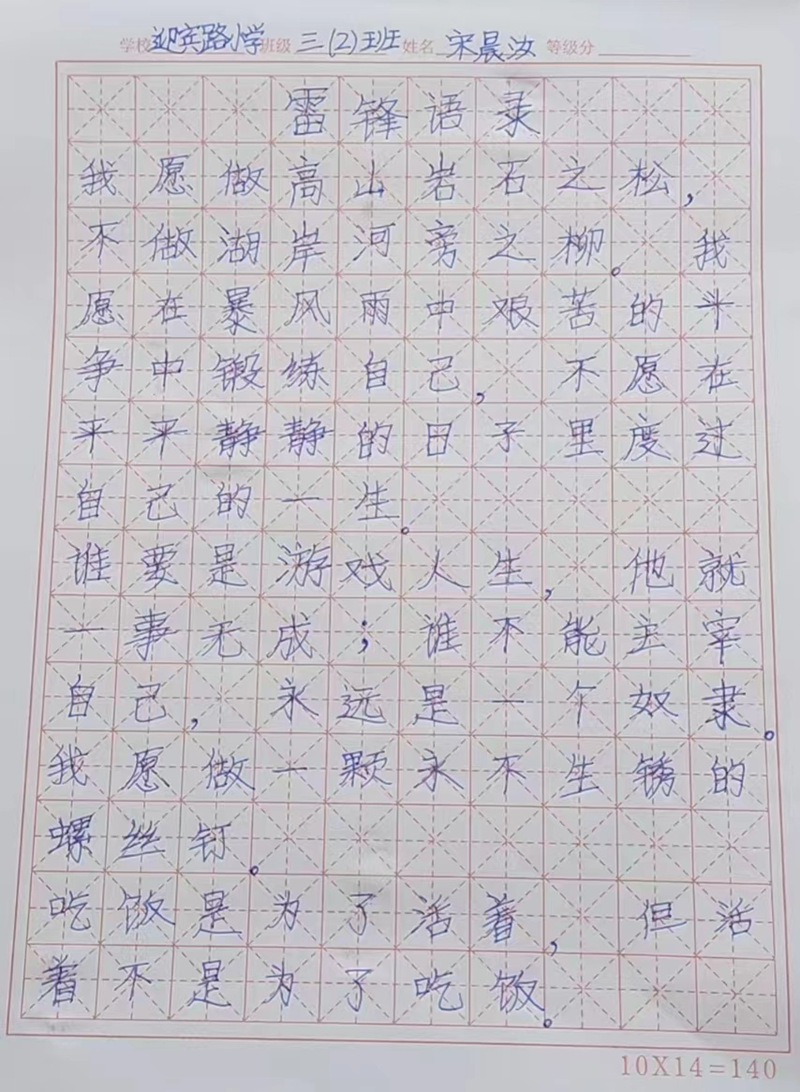 学校 迎宾路小学 班级 三(2)班 姓名 宋晨汝 等级分
雷锋语录
我愿做高山岩石之松，
不做湖岸河旁之柳。我
愿在暴风雨中艰苦的斗
争中锻练自己，不愿在
平平静静的日子里度过
自己的一生。
谁要是游戏人生，他就
一事无成；谁不能主宰
自己，永远是一个奴隶。
我愿做一颗永不生锈的
螺丝钉。
吃饭是为了活着，但活
着不是为了吃饭。
10X14=140